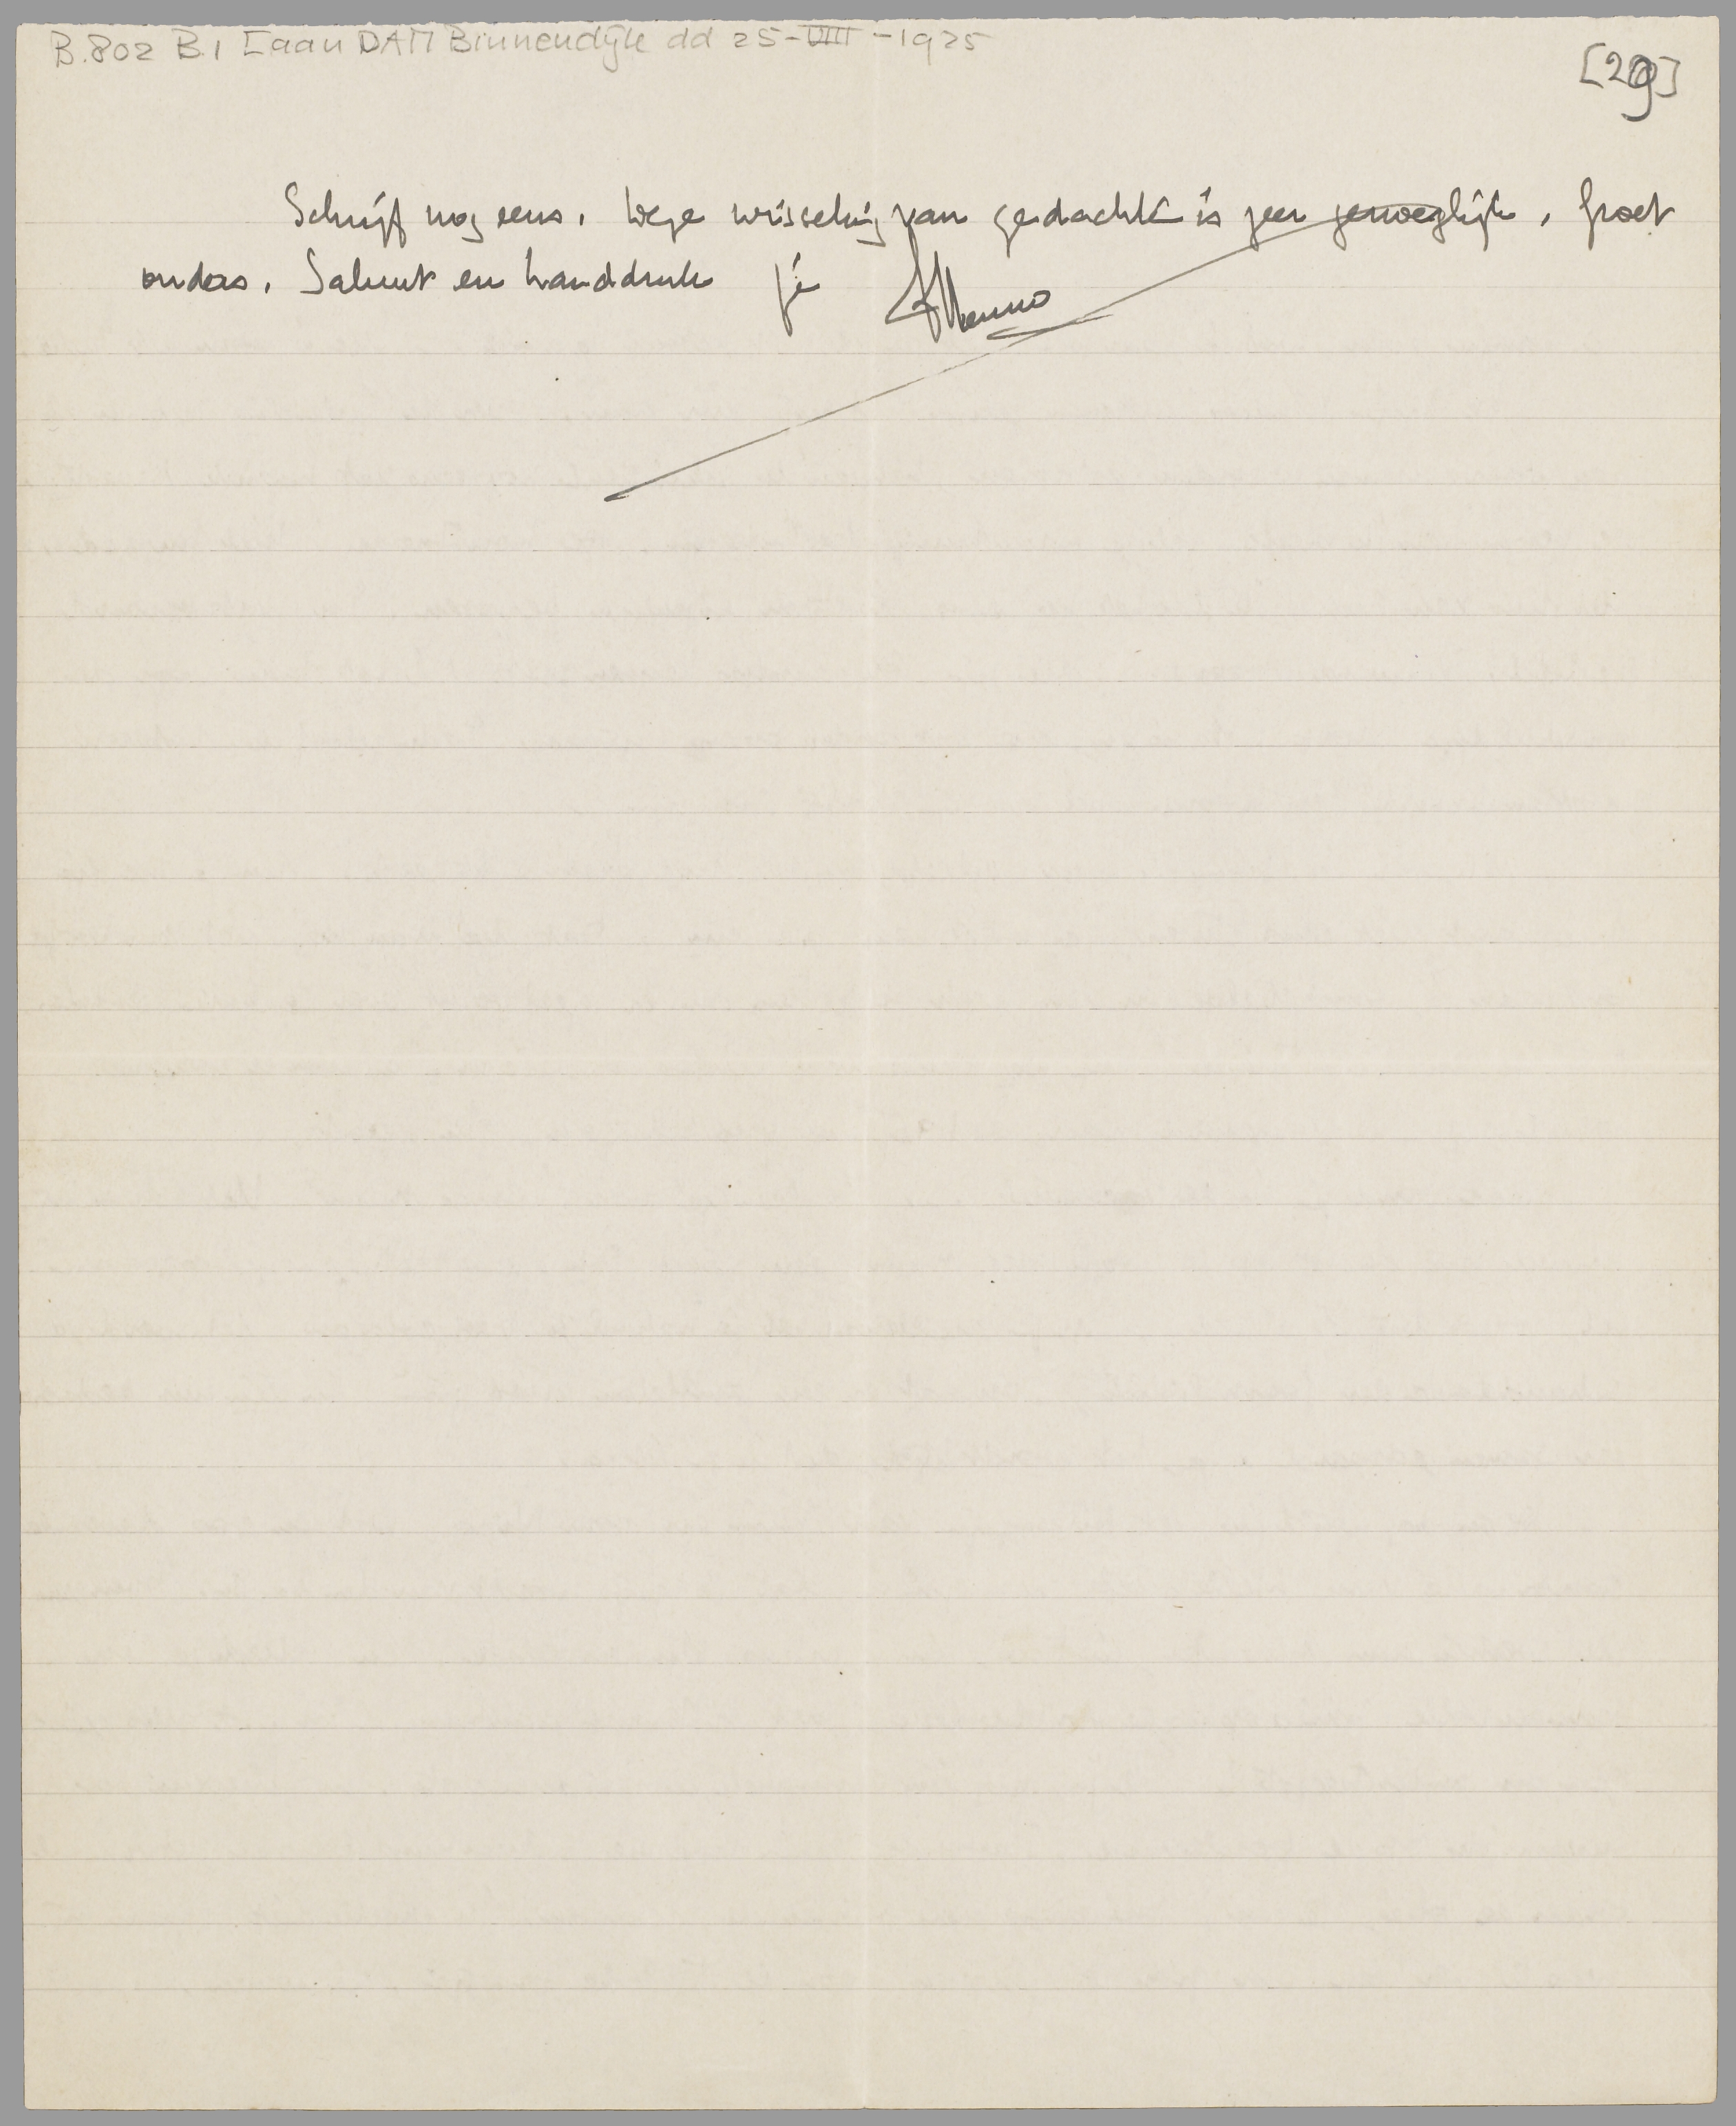 B.802 B.1 [aan DAM Binnendijk dd 25-VIII-1925
[29]
Schrijf nog eens. Deze wisseling van gedachte is zeer genoeglijk. Groet
ouders. Saluut en handdruk je
Menno